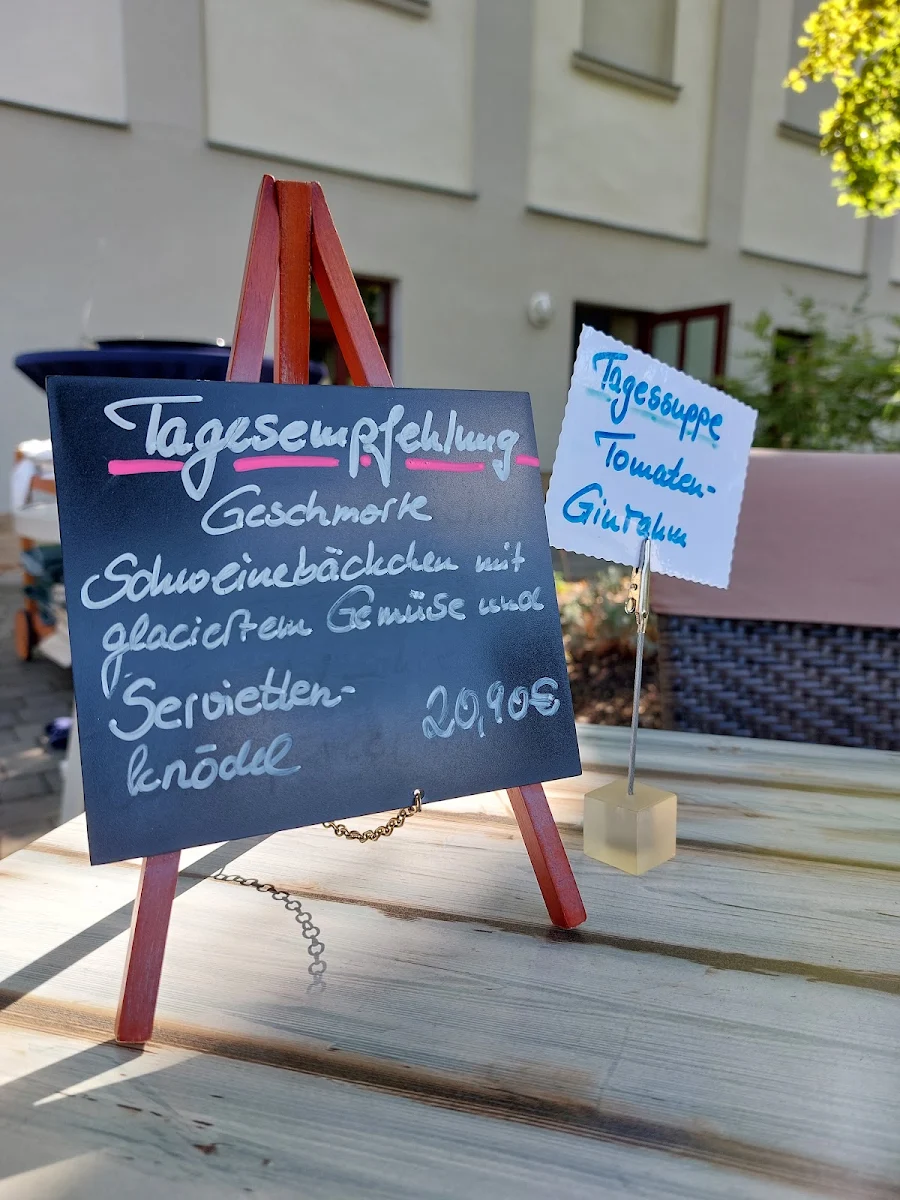 Tagesempfehlung
Geschmorte
Schweinebäckchen mit
glaciertem Gemüse und
Servietten-
knödel
20,90€
Tagessuppe
Tomaten-
Ginrahm